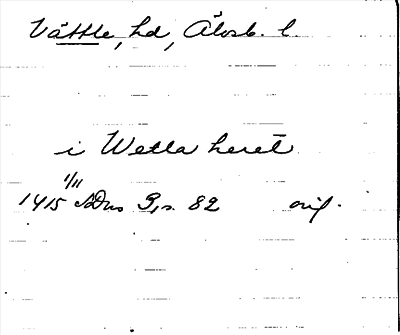 Vättle, hd, Älvsb. l.
i Wetla heret
1/11
1415 SDns 3, s. 82 orig.